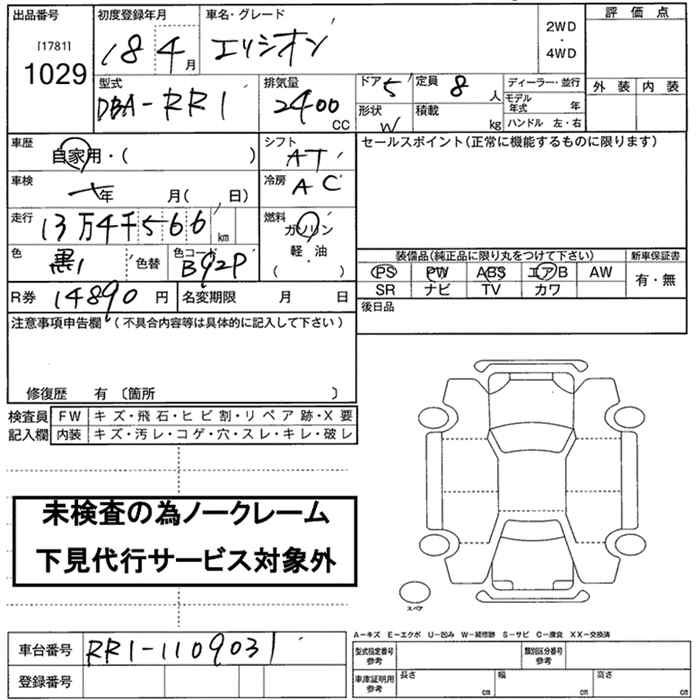 出品番号 初度登録年月 車名・グレード 評価点
[1781] 1029 18 4月 エリシオン 2WD・4WD
型式 排気量 ドア 5 定員 8人 ディーラー・並行 外装 内装
DBA-RR1 2400 CC 形状 W 積載 kg モデル年式 年
ハンドル 左・右
車歴 自家用・( ) シフト AT セールスポイント(正常に機能するものに限ります)
車検 年 月( 日) 冷房 AC
走行 13万4千566 km 燃料 ガソリン
軽・油
( )
色 黒 色替 色コード B92P
装備品(純正品に限り丸をつけて下さい) 新車保証書
PS PW ABS エアB AW 有・無
SR ナビ TV カワ
R券 14890円 名変期限 月 日 後日品
注意事項申告欄(不具合内容等は具体的に記入して下さい)
修復歴 有 〔箇所 〕
検査員 FW キズ・飛石・ヒビ割・リペア跡・X要
記入欄 内装 キズ・汚レ・コゲ・穴・スレ・キレ・破レ
未検査の為ノークレーム
下見代行サービス対象外
スペア
A-キズ E-エクボ U-凹み W-補修跡 S-サビ C-腐食 XX-交換済
車台番号 RR1-1109031 型式指定番号 参考 類別区分番号 参考
登録番号 車庫証明用 参考 長さ cm 幅 cm 高さ cm